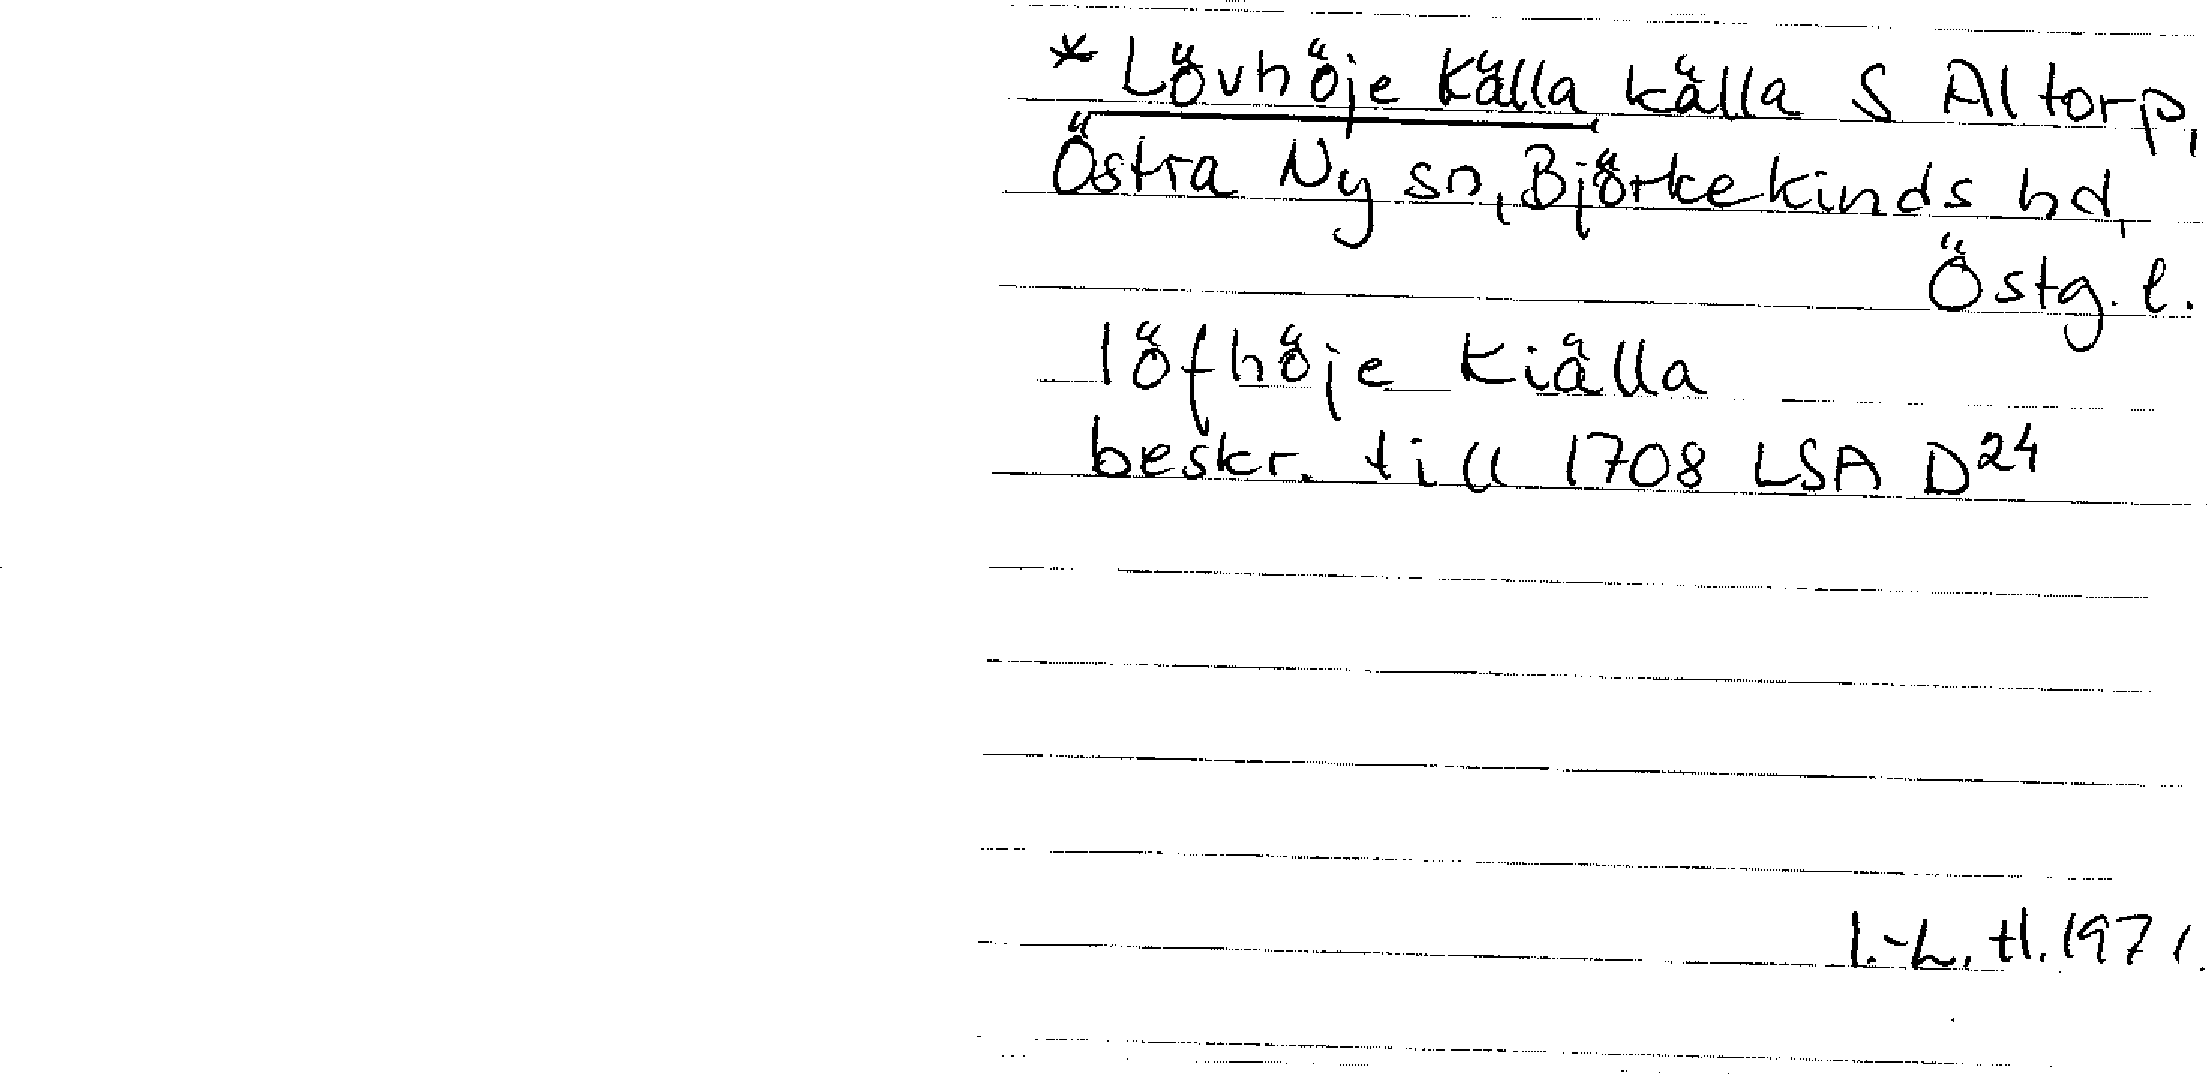 * Lövhöje Källa källa S Altorp,
Östra Ny sn, Björkekinds hd,
Östg. l.
löfhöje Kiälla
beskr. till 1708 LSA D24
I.-L. H. 1971.